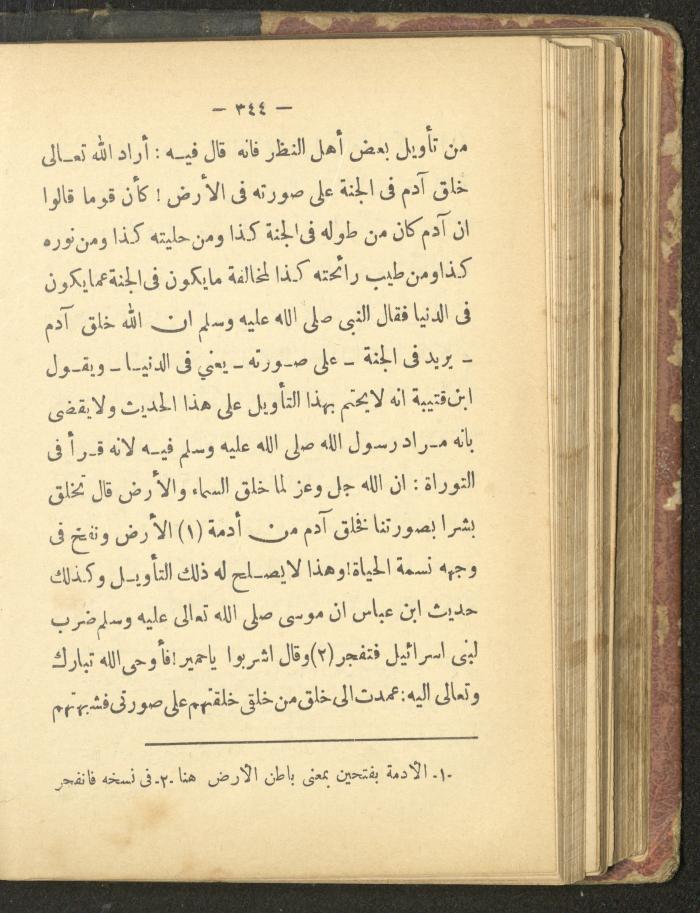 — ٣٤٤ —
من تأويل بعض أهل النظر فانه قال فيه : أراد الله تعالى
خلق آدم فى الجنة على صورته فى الأرض ! كأن قوما قالوا
ان آدم كان من طوله فى الجنة كذا ومن حليته كذا ومن نوره
كذا ومن طيب رائحته كذا لمخالفة مايكون فى الجنة عما يكون
فى الدنيا فقال النبى صلى الله عليه وسلم ان الله خلق آدم
ـ يريد فى الجنة ـ على صورته ـ يعني فى الدنيا ـ ويقول
ابن قتيبة انه لايحتم بهذا التأويل على هذا الحديث ولا يقضى
بانه مراد رسول الله صلى الله عليه وسلم فيه لانه قرأ فى
التوراة : ان الله جل وعز لما خلق السماء والأرض قال نخلق
بشرا بصورتنا فخلق آدم من أدمة (١) الأرض ونفخ فى
وجهه نسمة الحياة! وهذا لايصلح له ذلك التأويل وكذلك
حديث ابن عباس ان موسى صلى الله تعالى عليه وسلم ضرب
لبنى اسرائيل فتفجر (٢) وقال اشربوا ياحمير! فأوحى الله تبارك
وتعالى اليه: عمدت الى خلق من خلقى خلقتهم على صورتى فشبهتهم
ـ١ـ الأدمة بفتحين بمعنى باطن الأرض هنا ـ٢ـ فى نسخه فانفجر